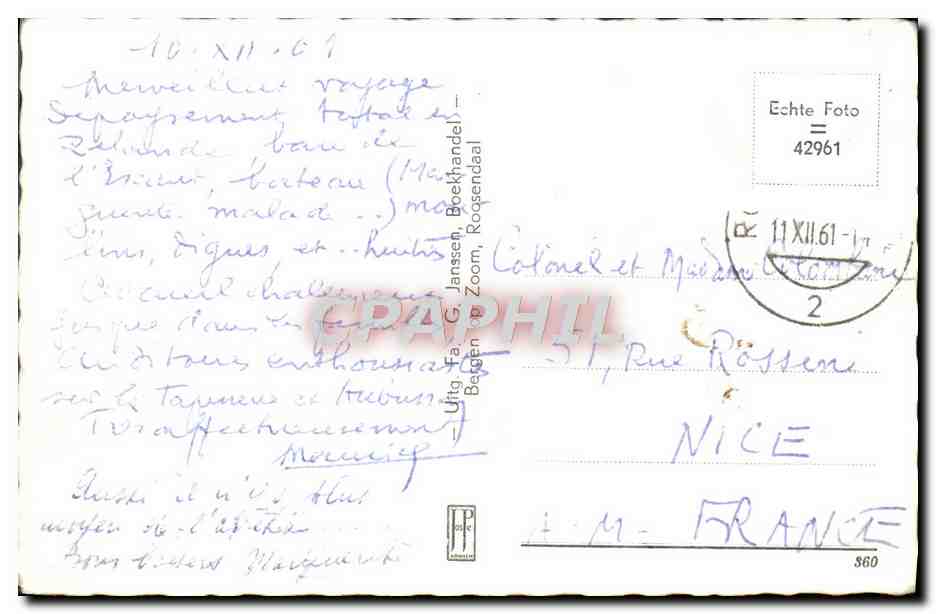 10.XII.61
Merveilleux voyage
Dépaysement total en
Zélande, bac de
l'Escaut, bateau (Mar-
guerite malade ..) mou-
lins, digues et .. huitres
Accueil chaleureux
jusque dans les familles
Auditoires enthousiastes
sur la Tapisserie et
Très affectueusement
Maurice
Aussi il n'y a plus
moyen de l'
Bons baisers Marguerite
Uitg. Fa. G. Janssen, Boekhandel -
Bergen op Zoom, Roosendaal
CPAPHIL
Echte Foto
=
42961
11 XII.61
2
Colonel et Madame
51, Rue Rossini
NICE
A-M- FRANCE
360